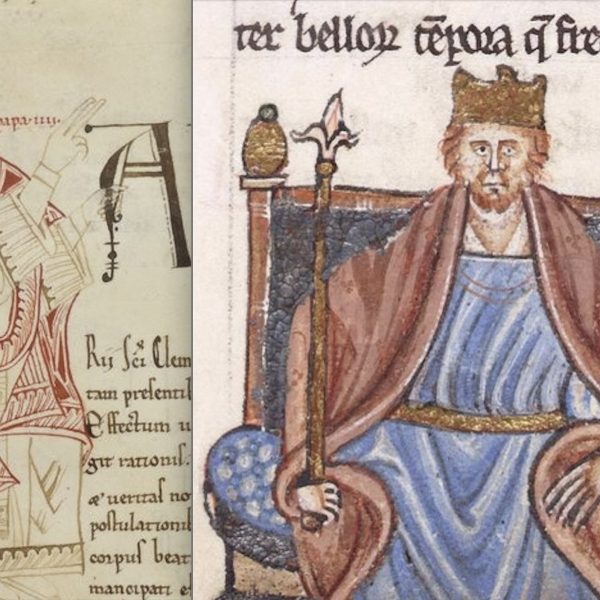 papa·iiii·
A
Rii Sc̄i Clem
tam presenti
Effectum u
git rationis.
æ veritas no
postulationi
corpus beat
mancipati e
ter belloꝝ tēpora q̄ fre